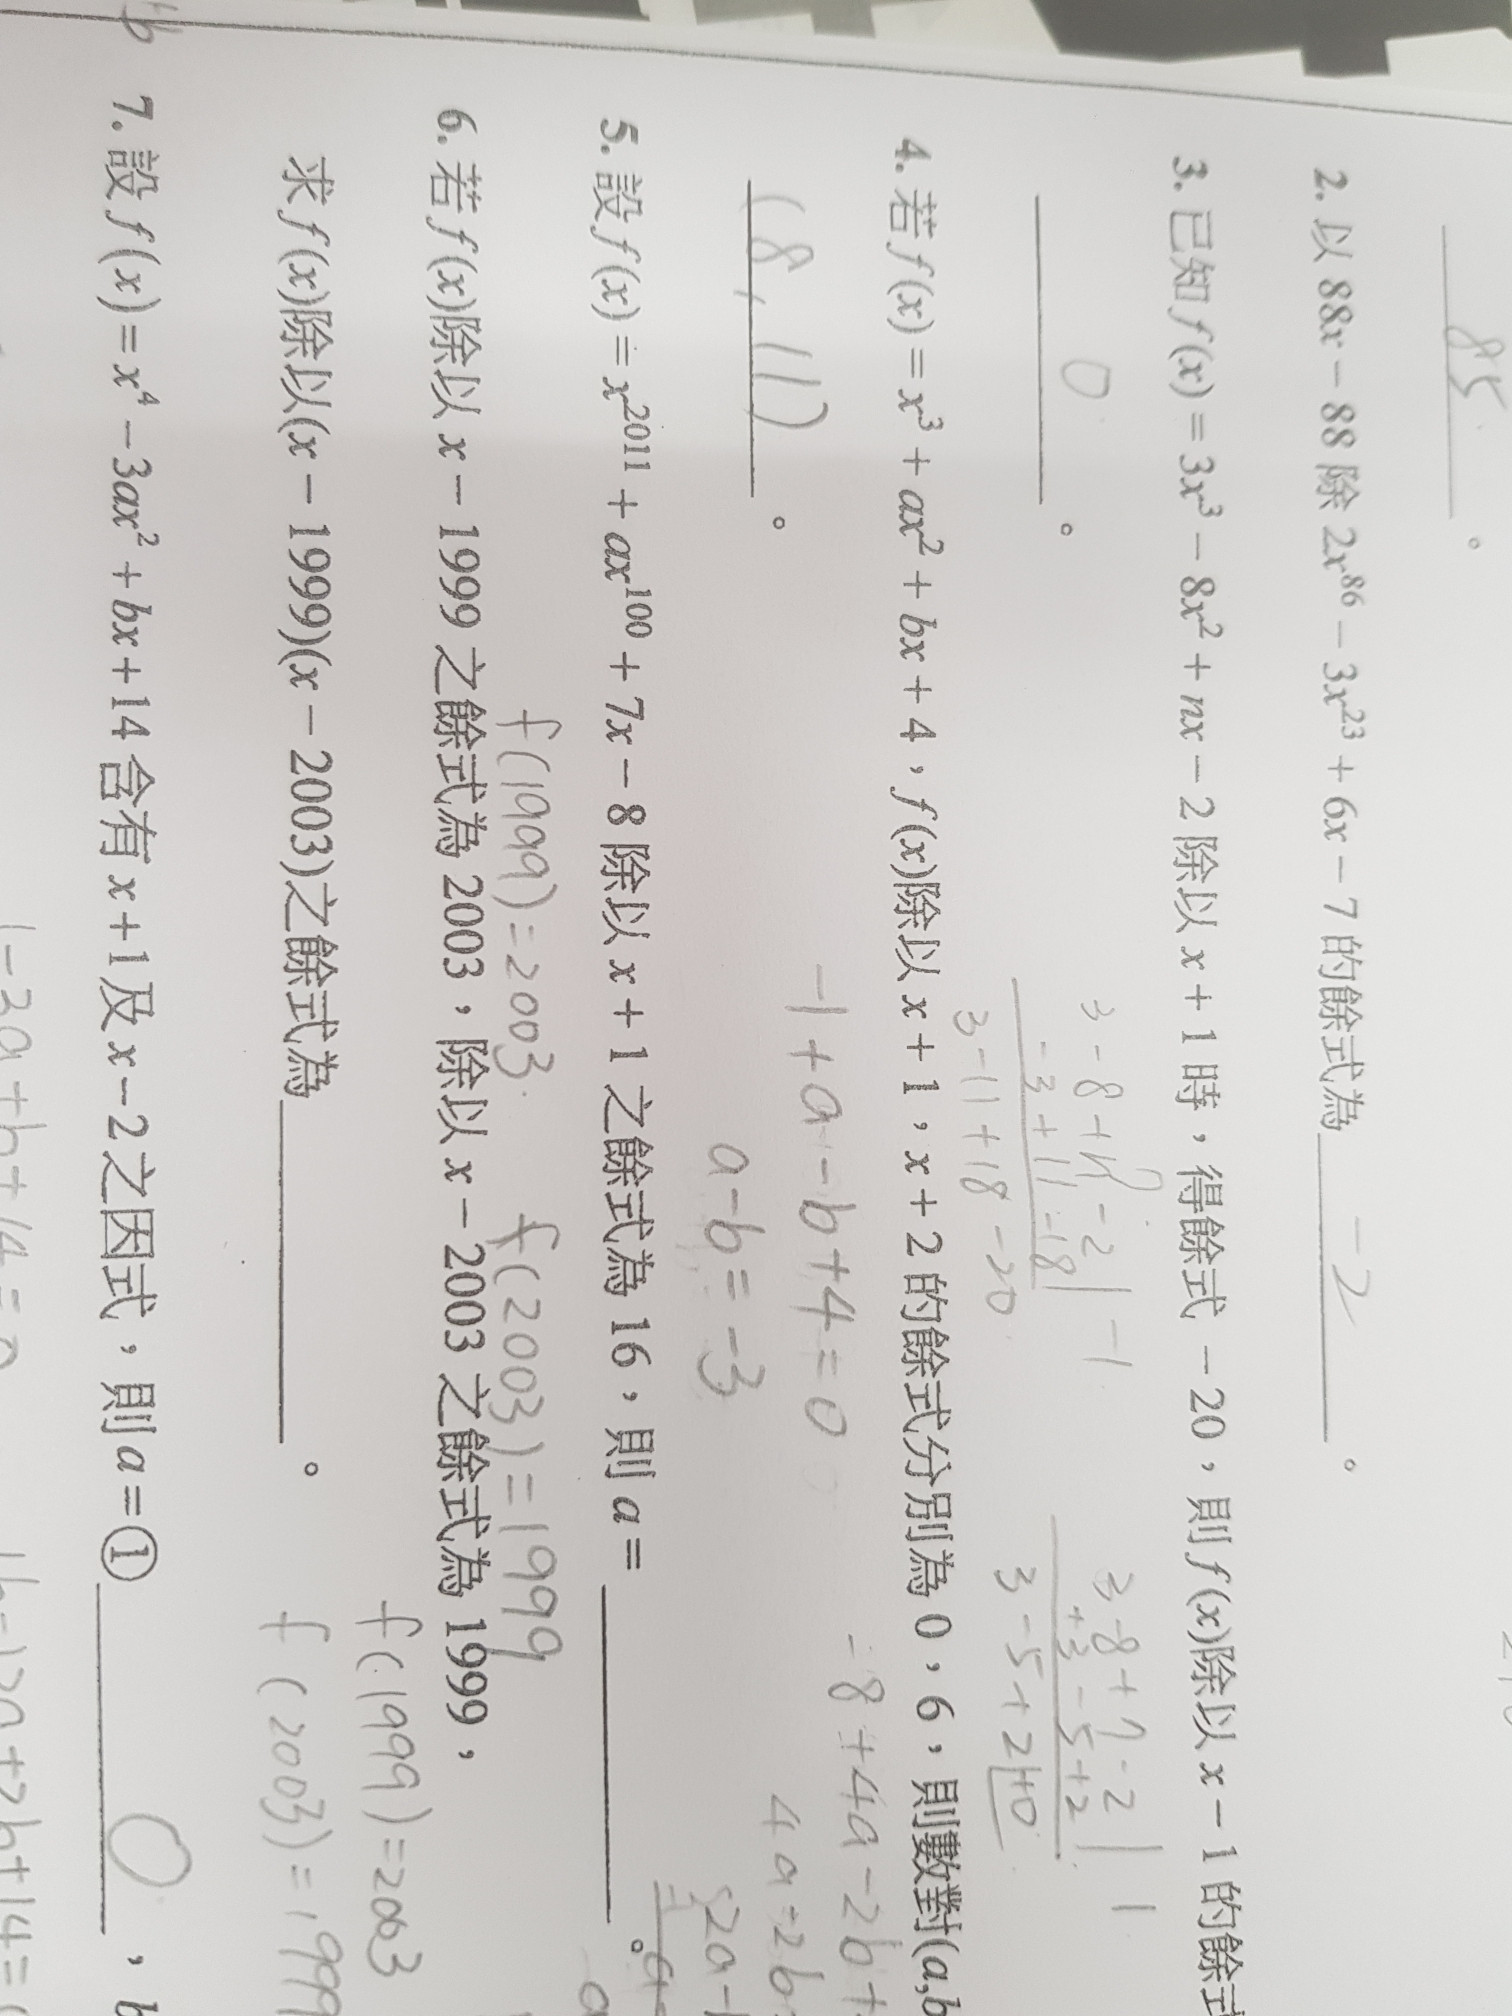 85 。
2. 以 88x − 88 除 2x⁸⁶ − 3x²³ + 6x − 7 的餘式為 −2 。
3. 已知 f(x) = 3x³ − 8x² + nx − 2 除以 x + 1 時，得餘式 −20，則 f(x)除以 x − 1 的餘式
0 。
3 −8 +7 −2 | −1
−3 +11 −18
3 −11 +18 −20
3 −8 +7 −2 | 1
+3 −5 +2
3 −5 +2 +0
4. 若 f(x) = x³ + ax² + bx + 4，f(x)除以 x + 1，x + 2 的餘式分別為 0，6，則數對(a,b
(8, 11) 。
−1 + a − b + 4 = 0
a − b = −3
−8 + 4a − 2b +
4a − 2b
5. 設 f(x) = x²⁰¹¹ + ax¹⁰⁰ + 7x − 8 除以 x + 1 之餘式為 16，則 a = 。
f(1999) = 2003 f(2003) = 1999
6. 若 f(x)除以 x − 1999 之餘式為 2003，除以 x − 2003 之餘式為 1999，
求 f(x)除以(x − 1999)(x − 2003)之餘式為 。
f(1999) = 2003
f(2003) = 1999
7. 設 f(x) = x⁴ − 3ax² + bx + 14 含有 x + 1 及 x − 2 之因式，則 a = ① 0 ，b